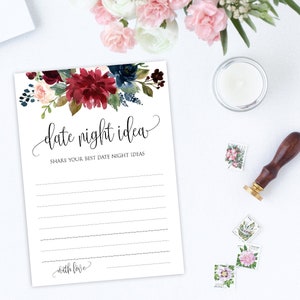 date night idea
SHARE YOUR BEST DATE NIGHT IDEAS
with love